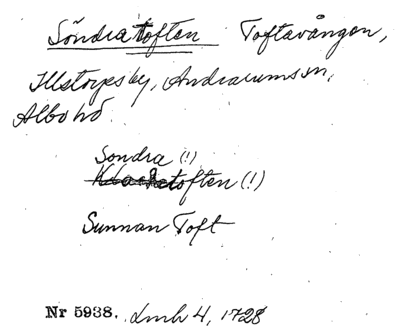 Söndra toften Toftavången,
Illstorps by, Andrarums sn,
Albo hd
Sondra (!)
toften (!)
Sunnan Toft
Nr 5938. Lmh 4, 1728